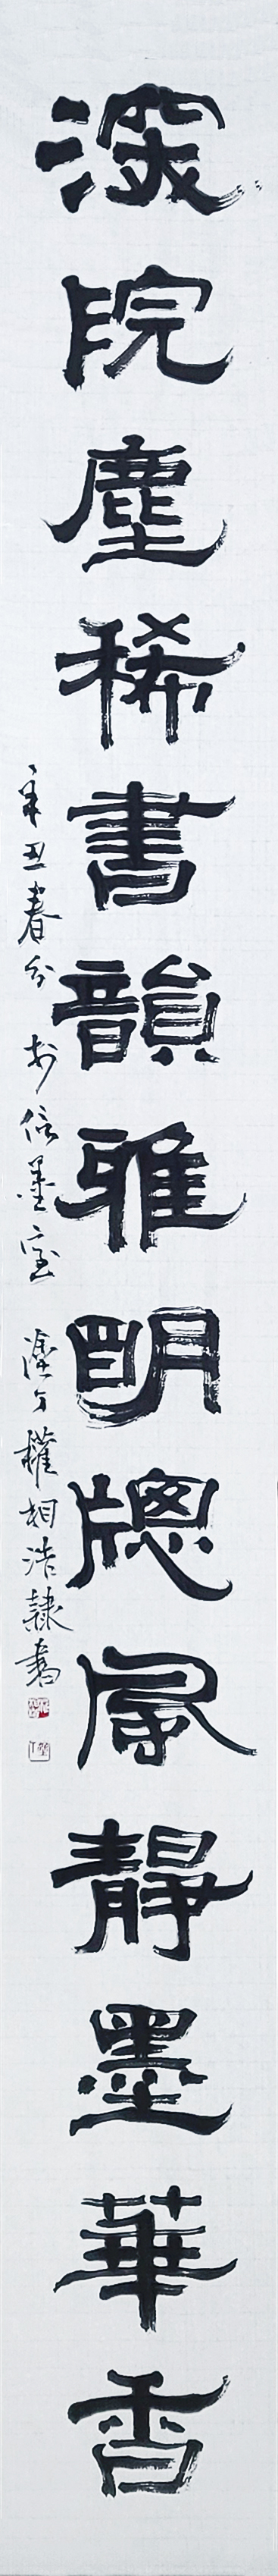 深院塵稀書韻雅明牎風靜墨華香
辛丑春分於信墨室漢予權相浩隸書